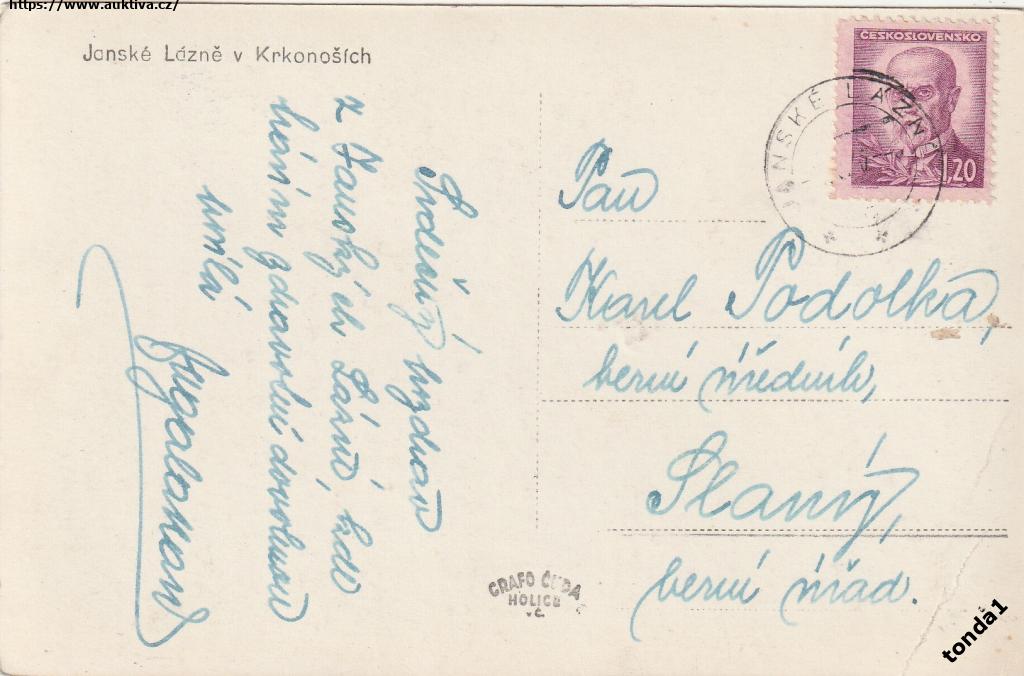 https://www.auktiva.cz/
Janské Lázně v Krkonoších
ČESKOSLOVENSKO
1,20
JANSKÉ LÁZNĚ
Srdečný pozdrav
z Janských Lázní, kde
trávím zdravotní dovolenou
Pan
Karel Podolka,
berní úředník,
Slaný,
berní úřad.
GRAFO ČUDA
HOLICE
v Č.
tonda1